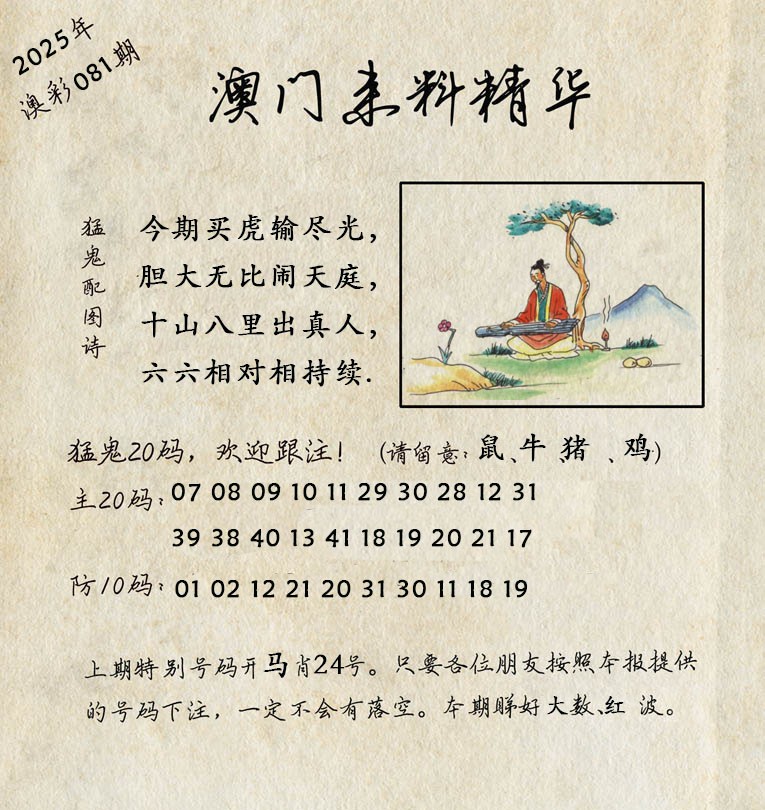 2025年
澳彩081期
澳门来料精华
猛鬼配图诗
今期买虎输尽光，
胆大无比闹天庭，
十山八里出真人，
六六相对相持续.
猛鬼20码，欢迎跟注！（请留意：鼠、牛 猪 、鸡）
主20码：07 08 09 10 11 29 30 28 12 31
39 38 40 13 41 18 19 20 21 17
防10码：01 02 12 21 20 31 30 11 18 19
上期特别号码开马肖24号。只要各位朋友按照本报提供
的号码下注，一定不会有落空。本期睇好大数、红 波。